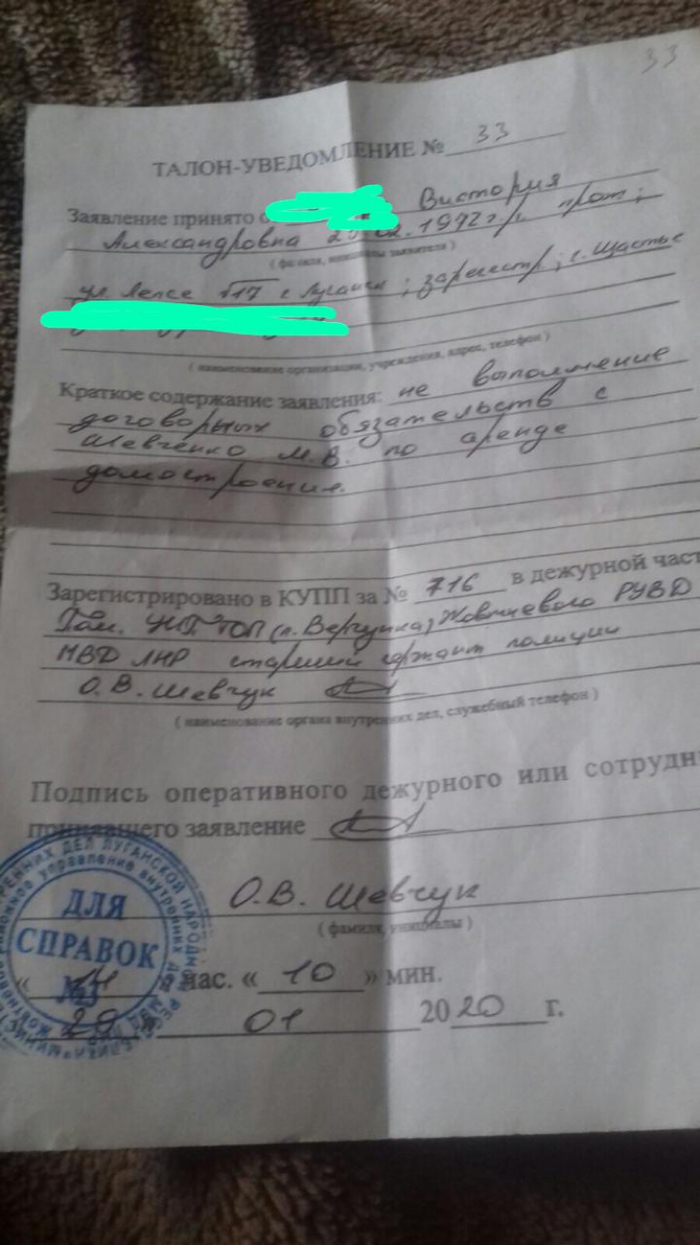 33
ТАЛОН-УВЕДОМЛЕНИЕ № 33
Заявление принято о Виктория
Александровна 1972 г/р, прож;
( фамилия, инициалы заявителя )
ул Лепсе г Луганск; зарегистр; г. Щастье
( наименование организации, учреждения, адрес, телефон )
Краткое содержание заявления: не выполнение
договорных обязательств с
Шевченко М.В. по аренде
домостроения.
Зарегистрировано в КУПП за № 716 в дежурной част
Пом. (п. Вергунка) Жовтневого РУВД
МВД ЛНР старший сержант полиции
О.В. Шевчук
( наименование органа внутренних дел, служебный телефон )
Подпись оперативного дежурного или сотрудн
принявшего заявление
О.В. Шевчук
( фамилия, инициалы )
« 14 » час. « 10 » мин.
29 01 2020 г.
ДЛЯ
СПРАВОК
№3